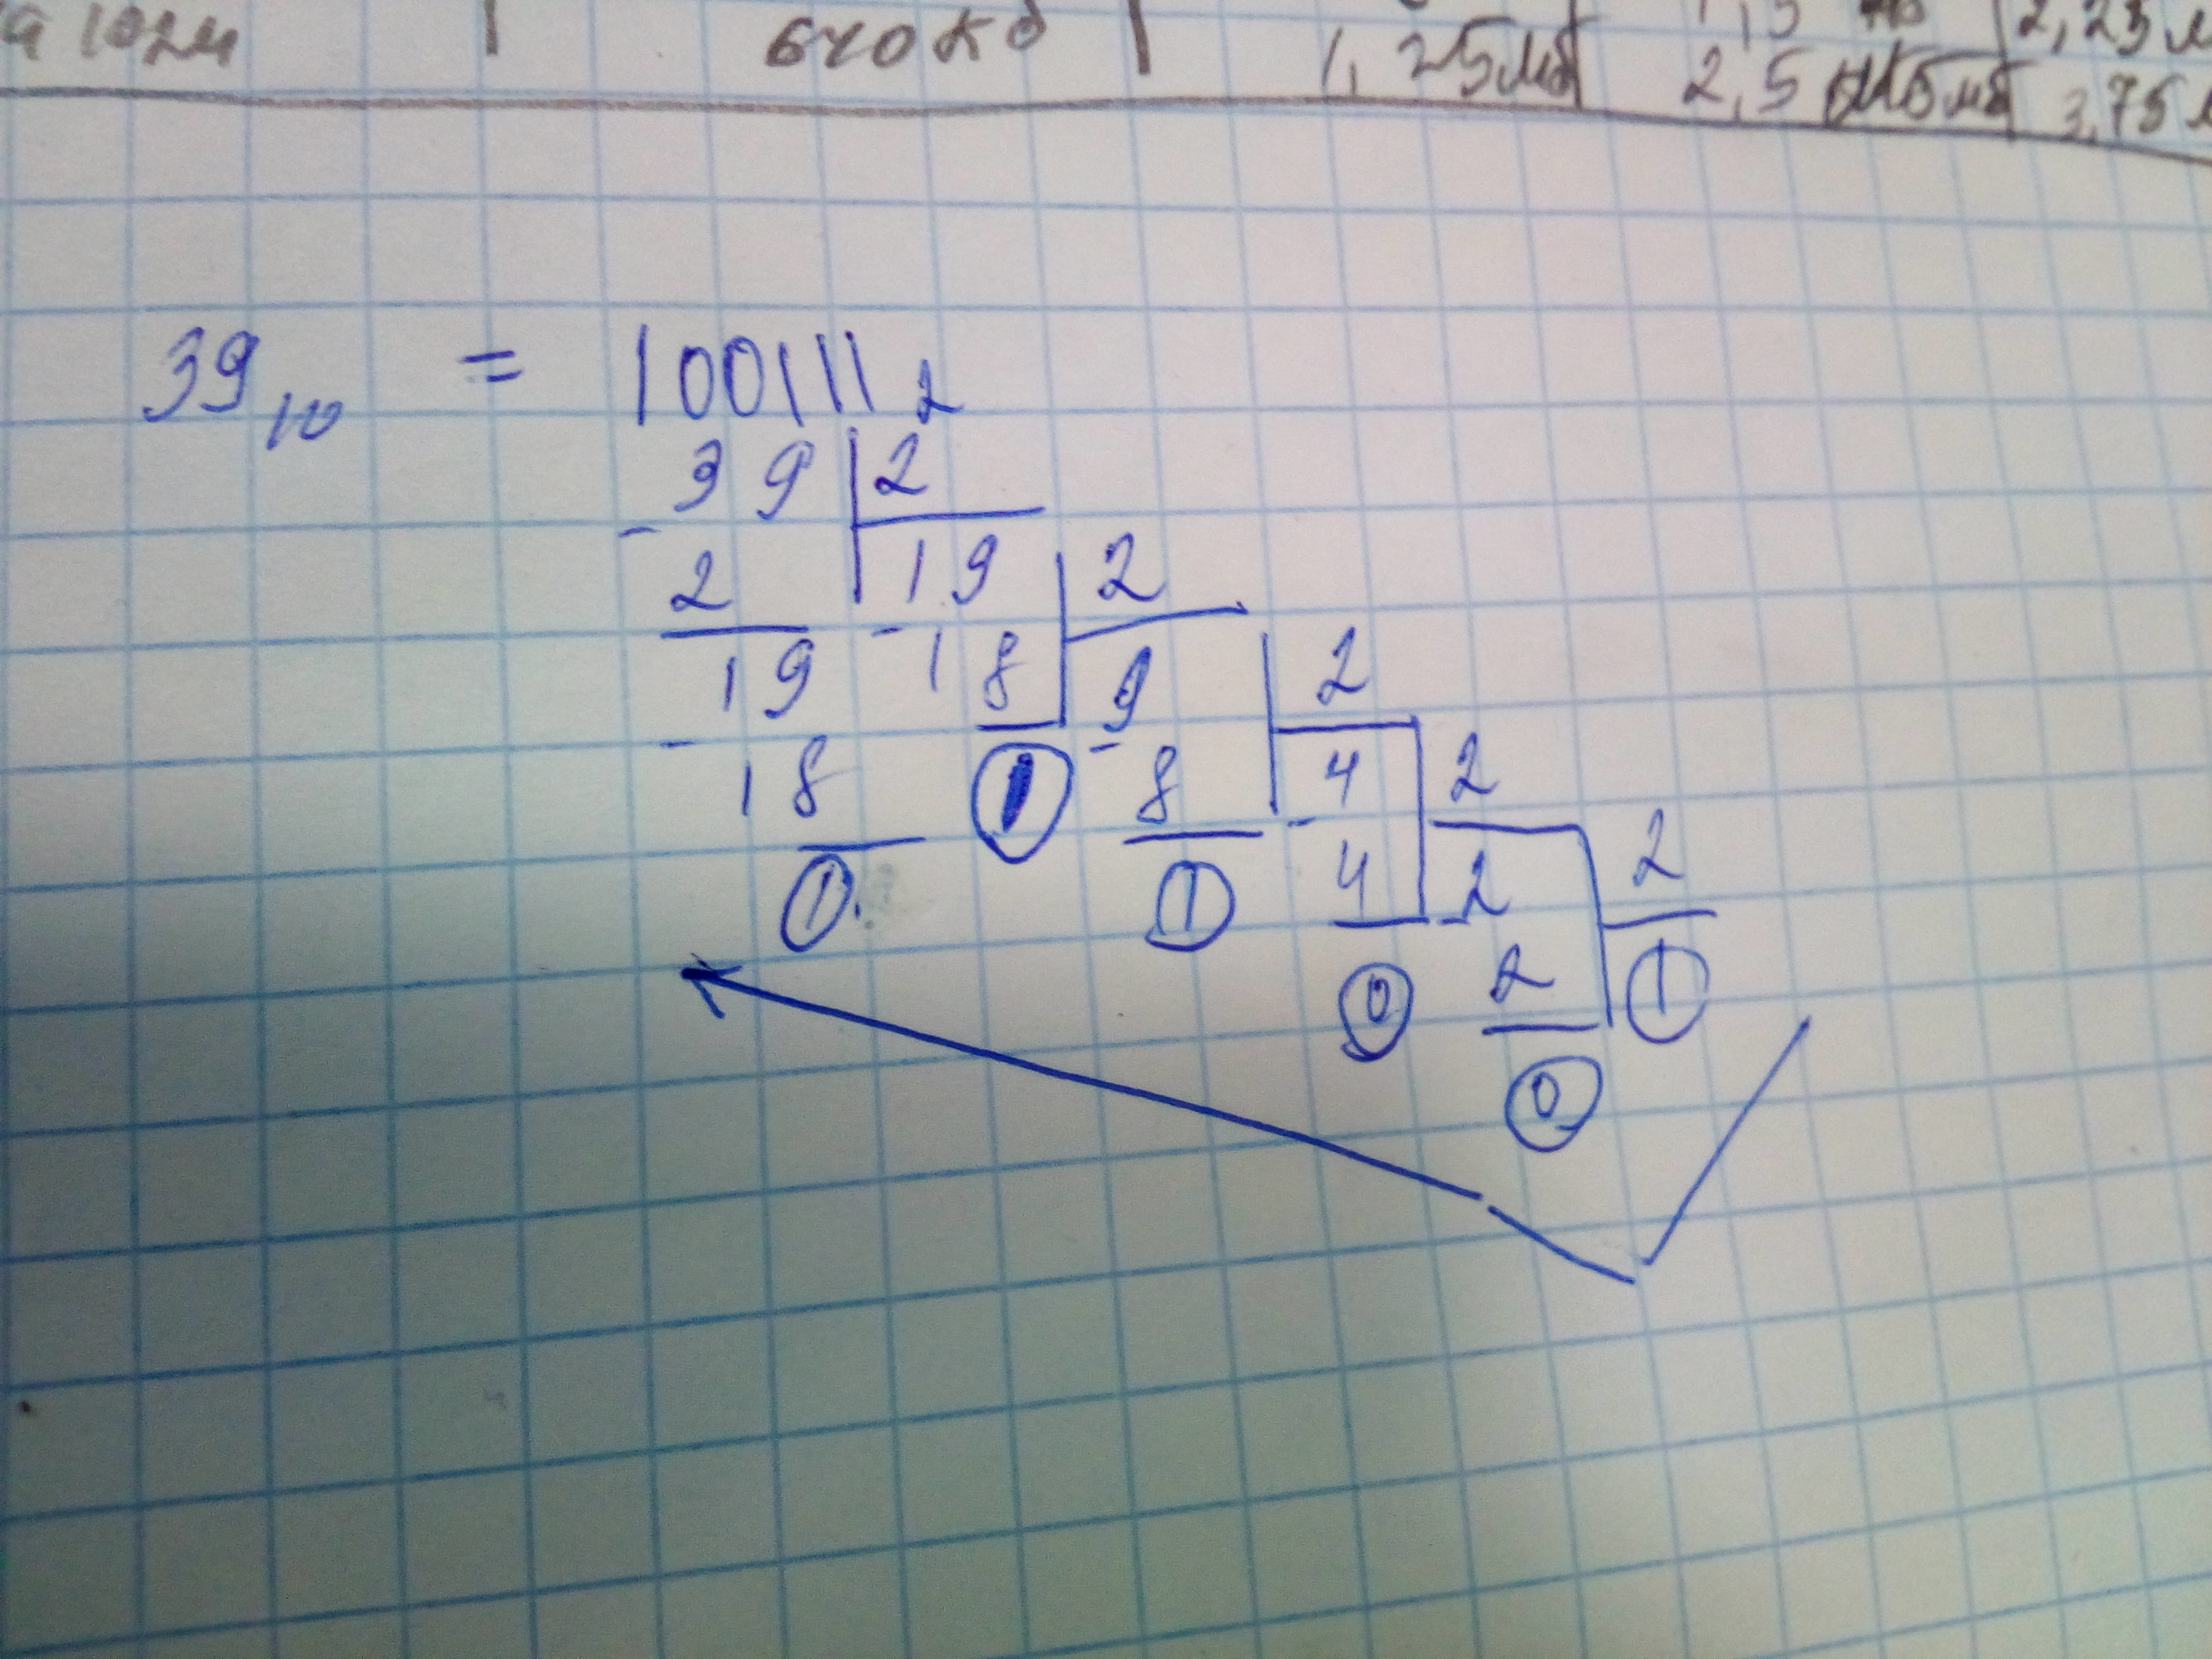 1024 640 Кб 1,25 Мб 2,5 Мб 3,75
39₁₀ = 100111₂
39 2
- 2 19 2
19 - 18 9 2
- 18 1 - 8 4 2
1 1 - 4 2 2
0 - 2 1
0